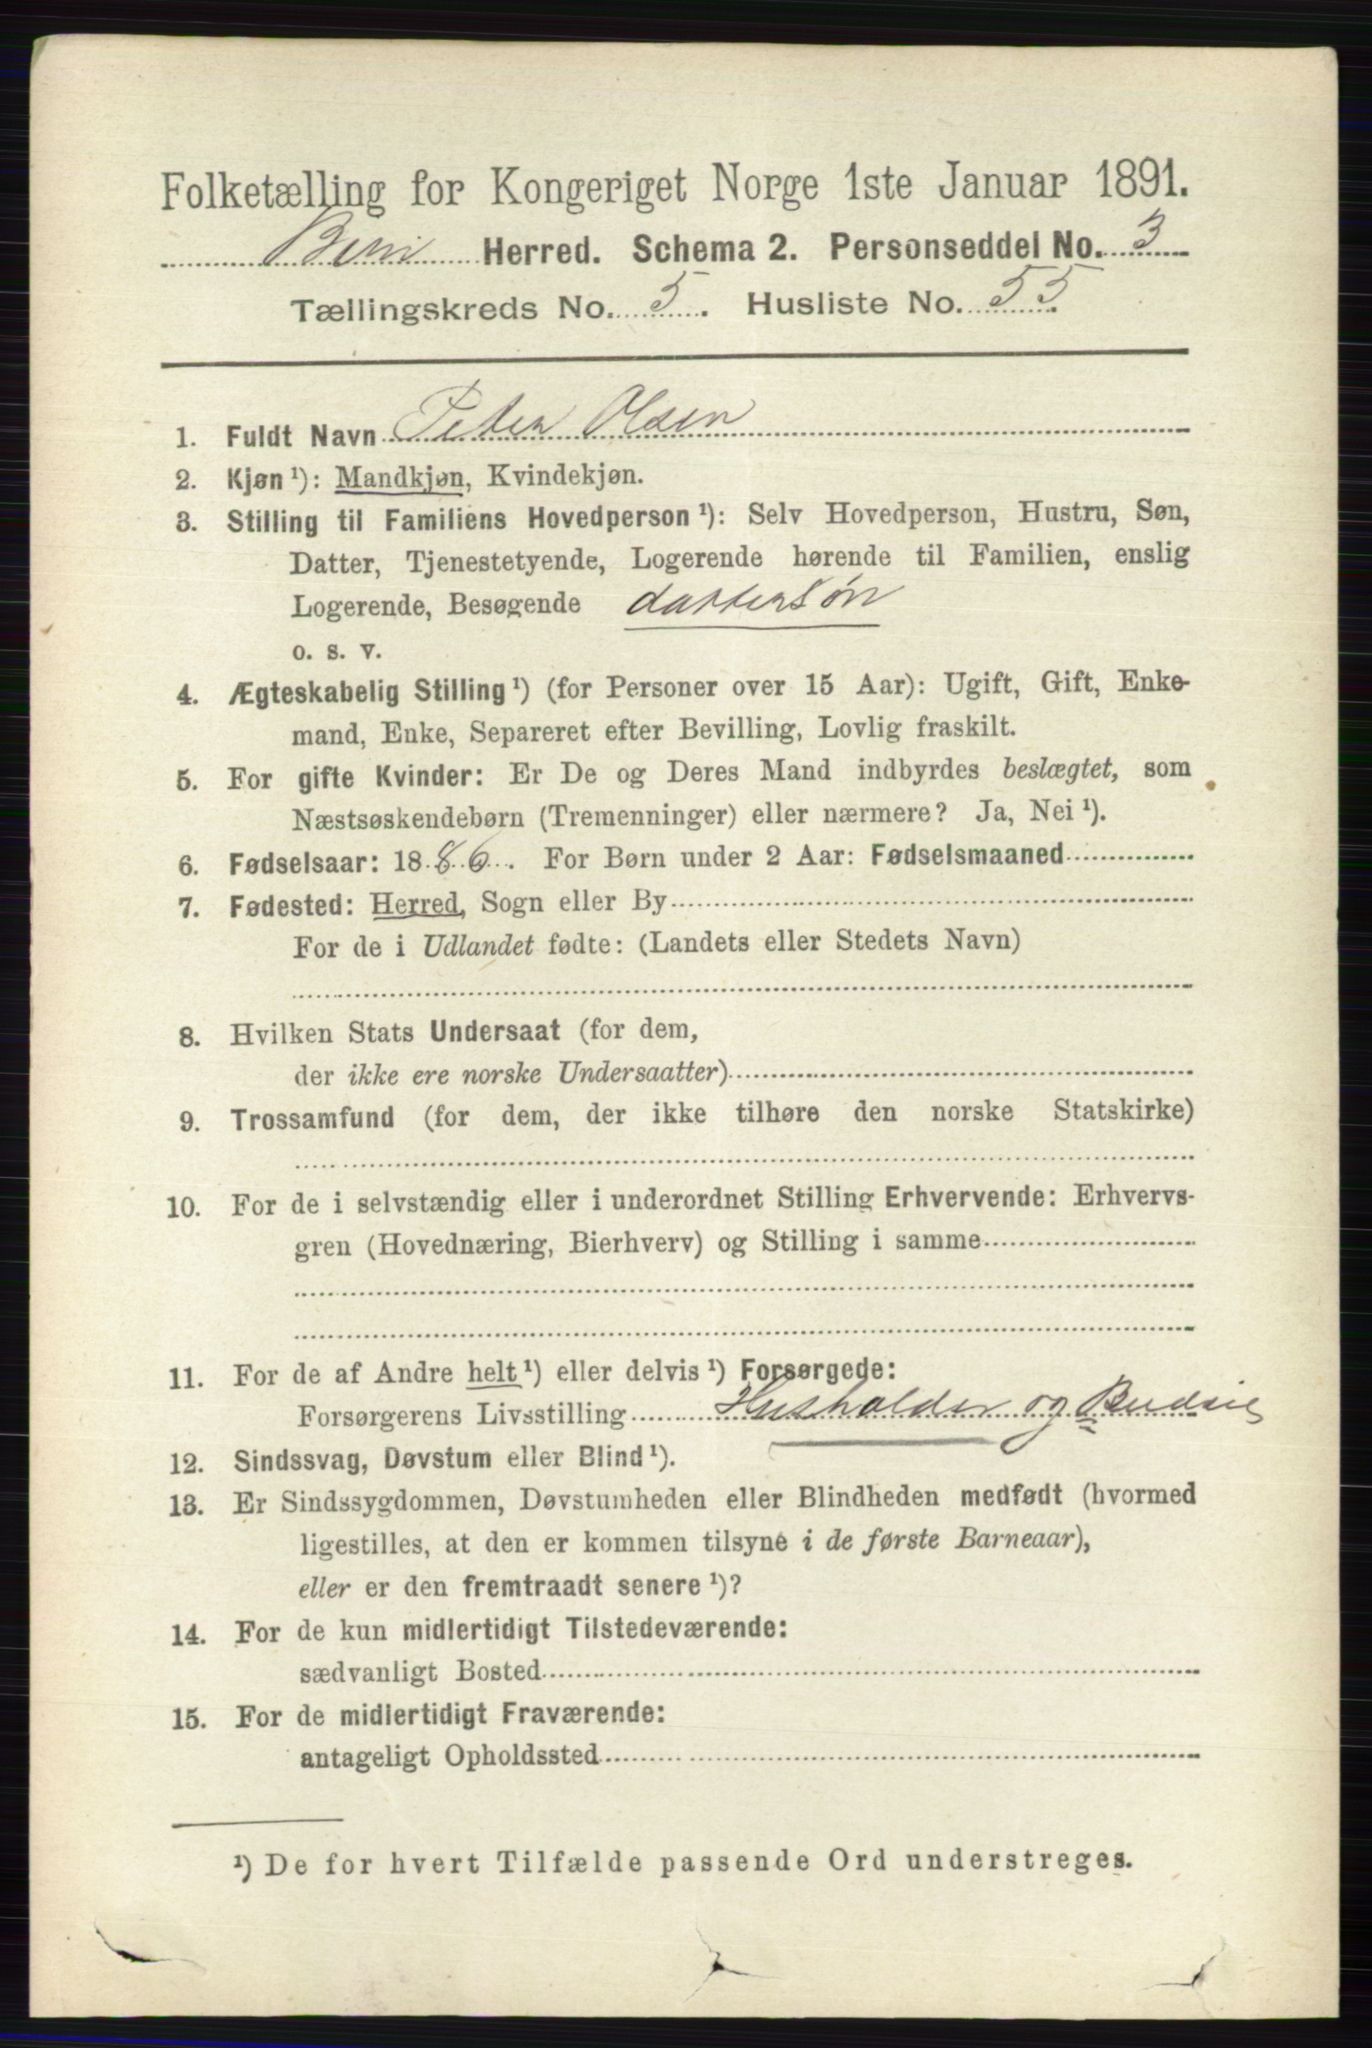 Folketælling for Kongeriget Norge 1ste Januar 1891.
Biri Herred. Schema 2. Personseddel No. 3
Tællingskreds No. 5. Husliste No. 55
1. Fuldt Navn Peter Olsen
2. Kjøn ¹): Mandkjøn, Kvindekjøn.
3. Stilling til Familiens Hovedperson ¹): Selv Hovedperson, Hustru, Søn,
Datter, Tjenestetyende, Logerende hørende til Familien, enslig
Logerende, Besøgende dattersøn
o. s. v.
4. Ægteskabelig Stilling ¹) (for Personer over 15 Aar): Ugift, Gift, Enke-
mand, Enke, Separeret efter Bevilling, Lovlig fraskilt.
5. For gifte Kvinder: Er De og Deres Mand indbyrdes beslægtet, som
Næstsøskendebørn (Tremenninger) eller nærmere? Ja, Nei ¹).
6. Fødselsaar: 1886. For Børn under 2 Aar: Fødselsmaaned
7. Fødested: Herred, Sogn eller By
For de i Udlandet fødte: (Landets eller Stedets Navn)
8. Hvilken Stats Undersaat (for dem,
der ikke ere norske Undersaatter)
9. Trossamfund (for dem, der ikke tilhøre den norske Statskirke)
10. For de i selvstændig eller i underordnet Stilling Erhvervende: Erhvervs-
gren (Hovednæring, Bierhverv) og Stilling i samme
11. For de af Andre helt ¹) eller delvis ¹) Forsørgede:
Forsørgerens Livsstilling Husholder og Budeie
12. Sindssvag, Døvstum eller Blind ¹).
13. Er Sindssygdommen, Døvstumheden eller Blindheden medfødt (hvormed
ligestilles, at den er kommen tilsyne i de første Barneaar),
eller er den fremtraadt senere ¹)?
14. For de kun midlertidigt Tilstedeværende:
sædvanligt Bosted
15. For de midlertidigt Fraværende:
antageligt Opholdssted
¹) De for hvert Tilfælde passende Ord understreges.